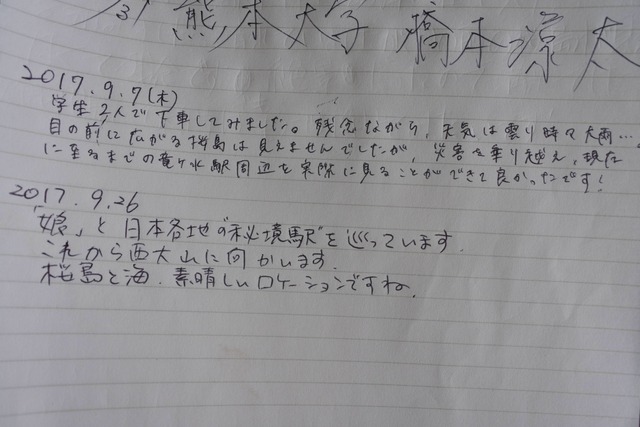 熊本大学 橋本涼太
2017.9.7(木)
学生2人で下車してみました。残念ながら、天気は曇り時々大雨…
目の前に広がる桜島は見えませんでしたが、災害を乗り越え、現在
に至るまでの竜ヶ水駅周辺を実際に見ることができて良かったです!
2017.9.26
「娘」と日本各地の"秘境駅"を巡っています.
これから西大山に向かいます.
桜島と海.素晴しいロケーションですね.